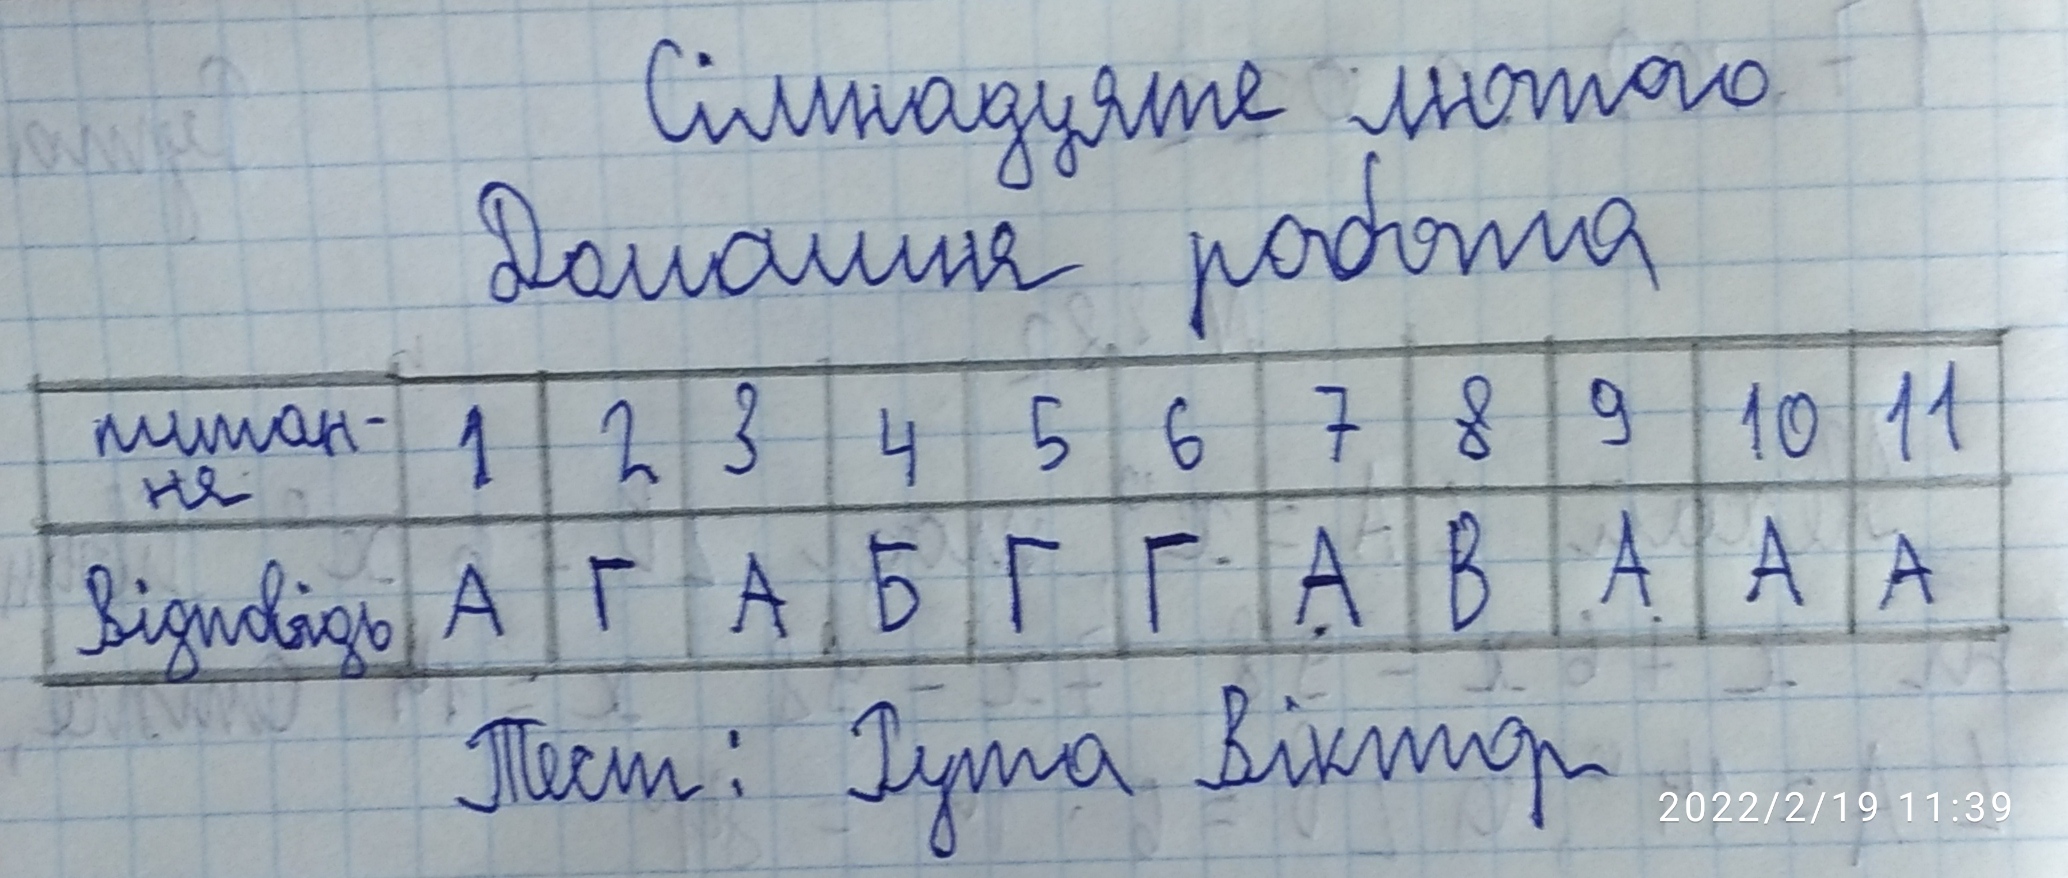 Сімнадцяте лютого
Домашня робота
питан- 1 2 3 4 5 6 7 8 9 10 11
ня
Відповідь А Г А Б Г Г А В А А А
Тест: Гута Віктор
2022/2/19 11:39